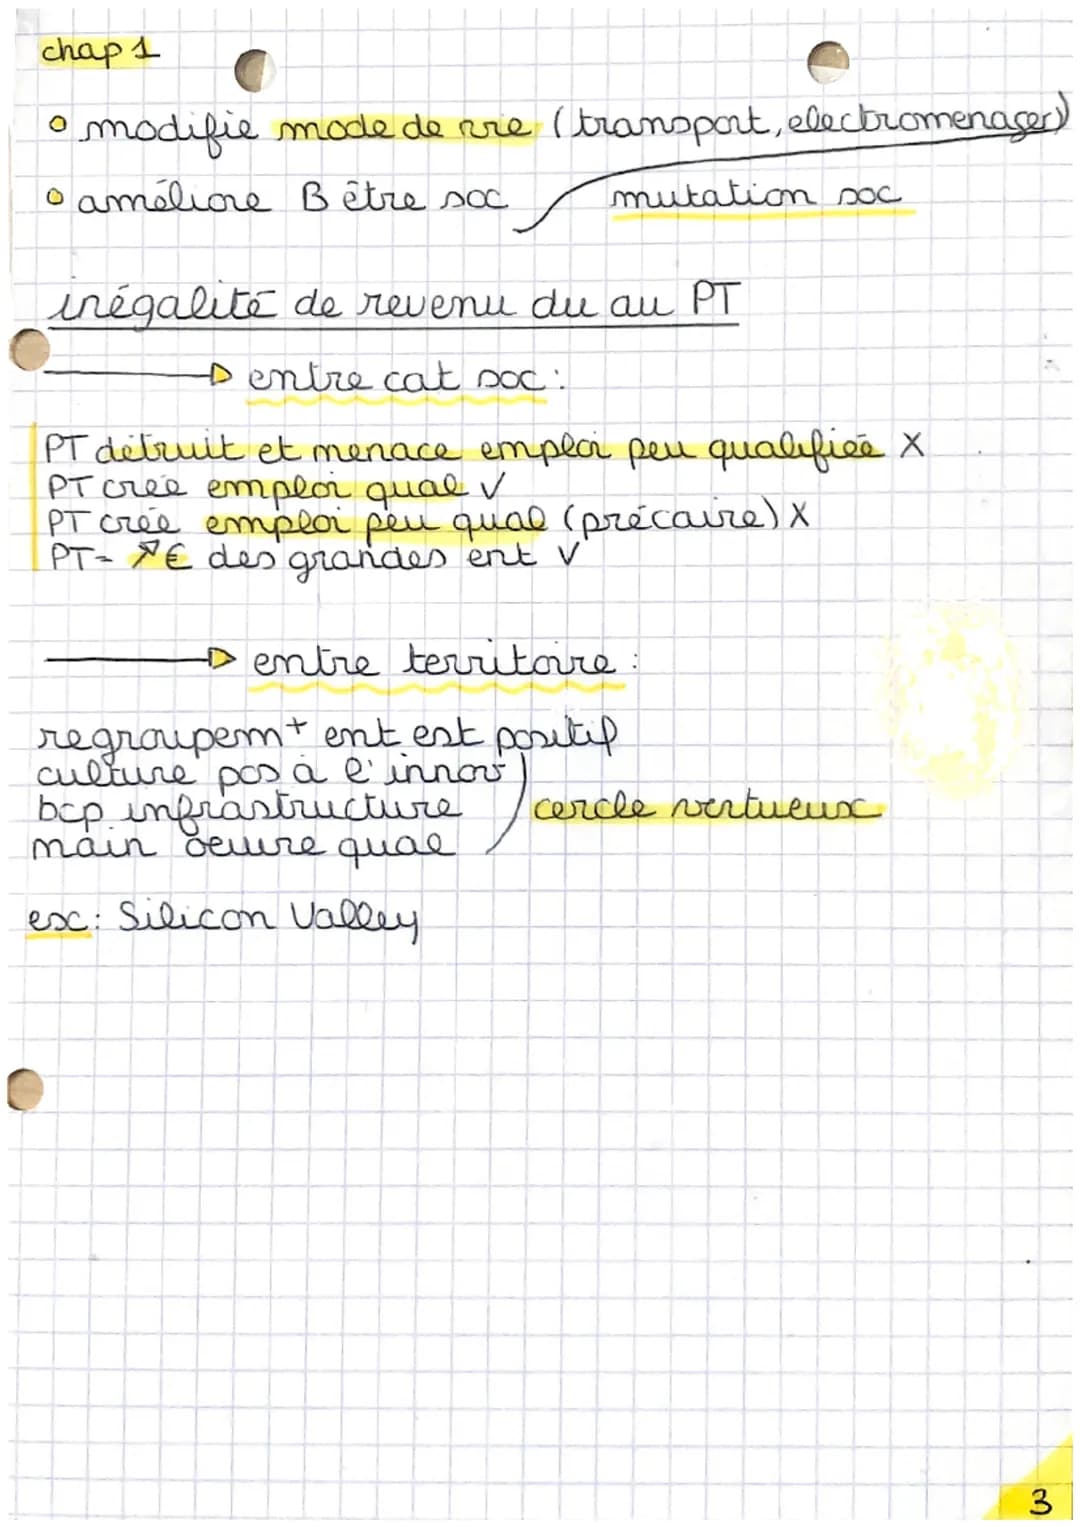 chap 1
modifie mode de vie (transport, electromenager)
améliore B être soc
mutation soc
inégalité de revenu du au PT
entre cat soc :
PT détruit et menace emploi peu qualifiée X
PT crée emploi qual √
PT crée emploi peu qual (précaire) X
PT = ↗ € des grandes ent √
entre territoire :
regroupemt ent est positif
culture pos à l'innov
bcp infrastructure
cercle vertueux
main oeuvre qual
ex : Silicon Valley
3